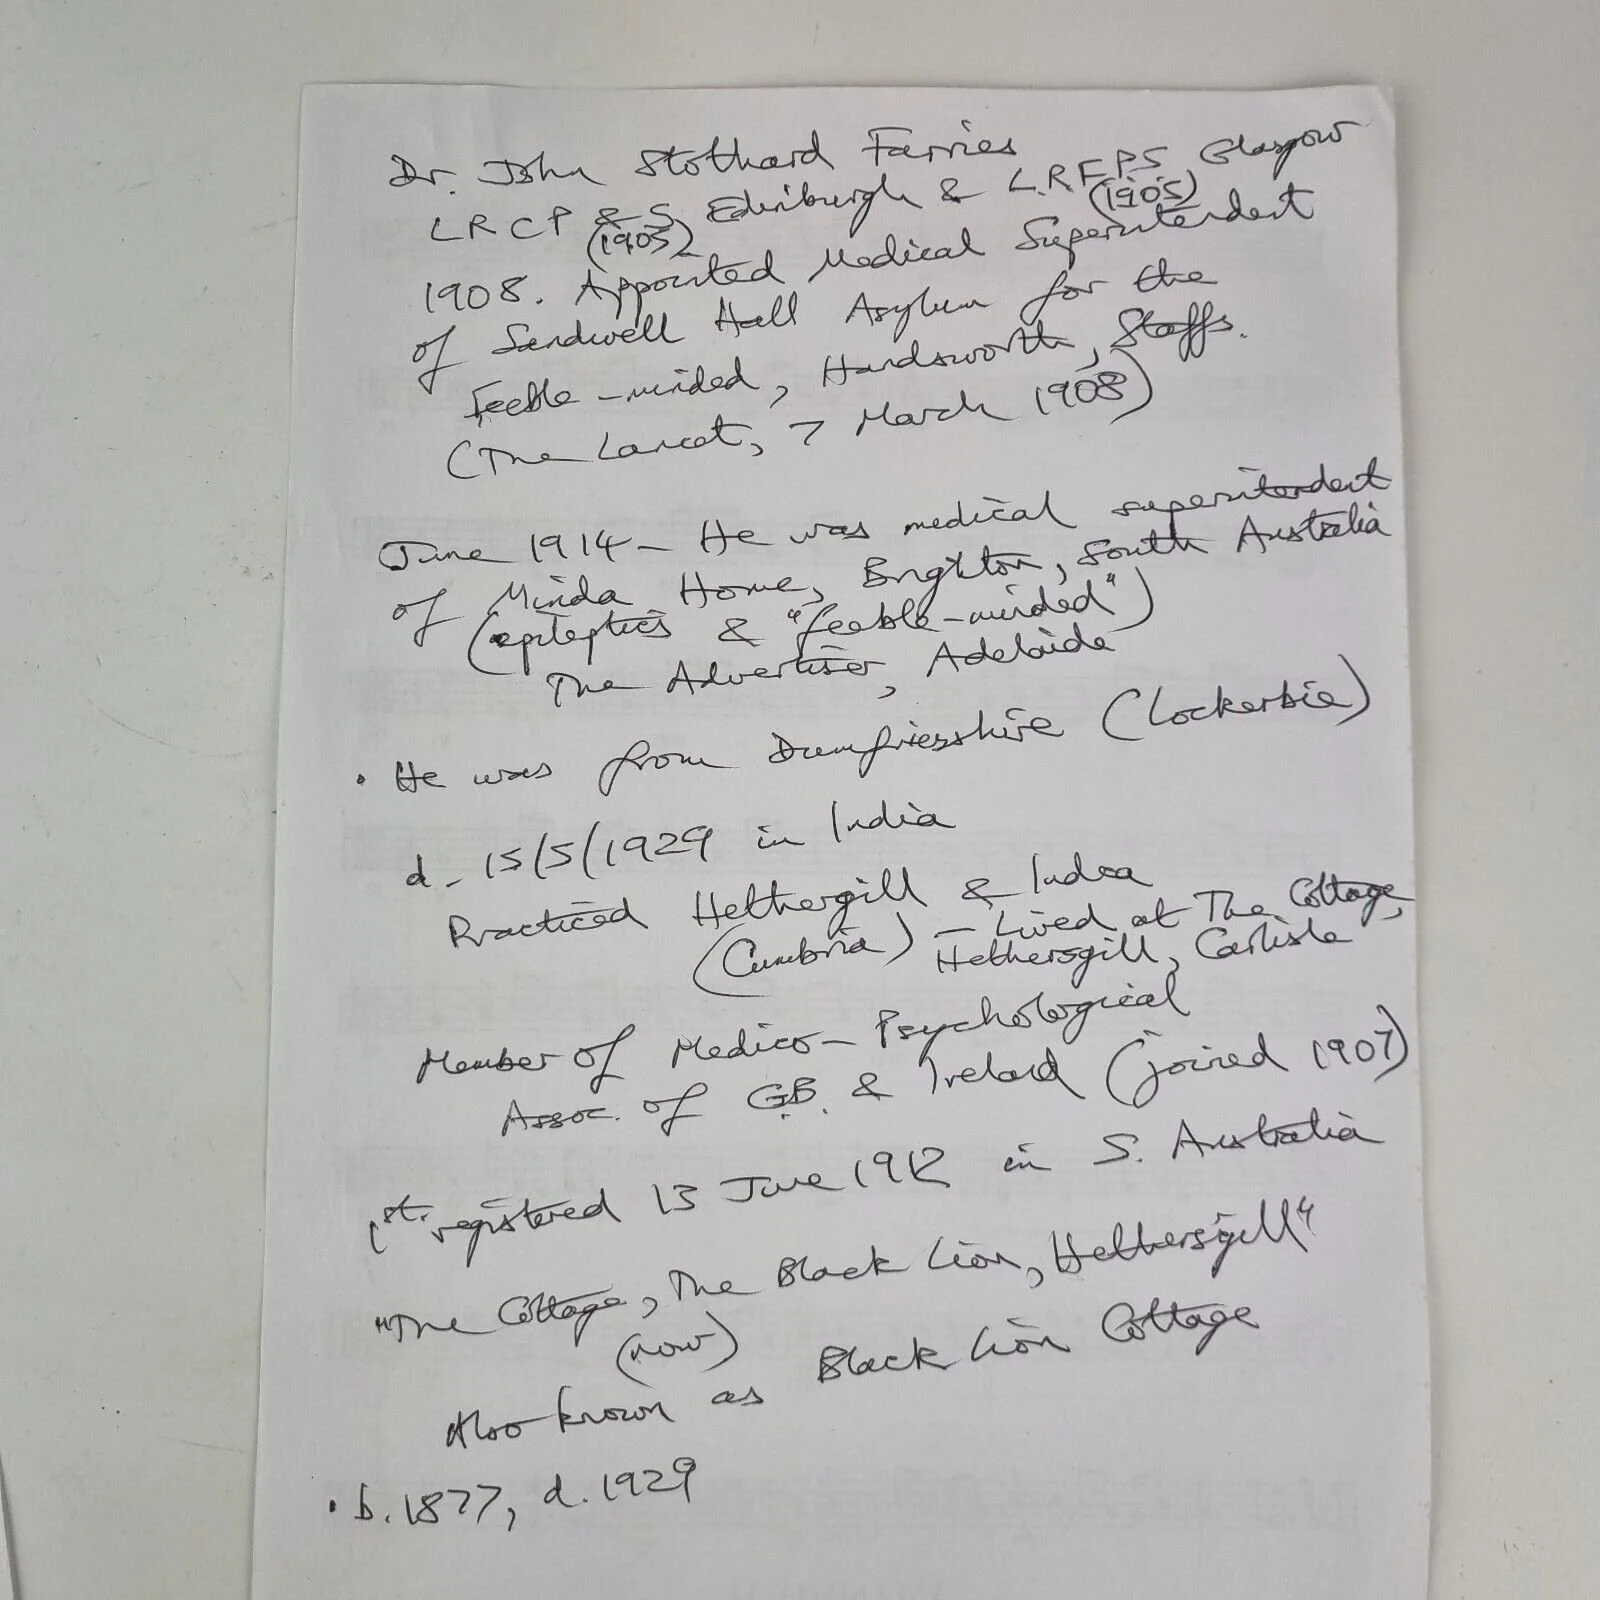 Dr. John Stothard Farries
LRCP & S Edinburgh & L.R.F.P.S Glasgow
(1905) (1905)
1908. Appointed Medical Superintendent
of Sandwell Hall Asylum for the
Feeble-minded, Handsworth, Staffs.
(The Lancet, 7 March 1908)
June 1914 - He was medical superintendent
of Minda Home, Brighton, South Australia
(epileptics & "feeble-minded")
The Advertiser, Adelaide
• He was from Dumfriesshire (Lockerbie)
d. 15/5/1929 in India
Practiced Hethergill & India
(Cumbria) - Lived at The Cottage,
Hethersgill, Carlisle
Member of Medico-Psychological
Assoc. of G.B. & Ireland (joined 1907)
1st. registered 13 June 1912 in S. Australia
"The Cottage, The Black Lion, Hethersgill"
(now)
Also known as Black Lion Cottage
• b. 1877, d. 1929